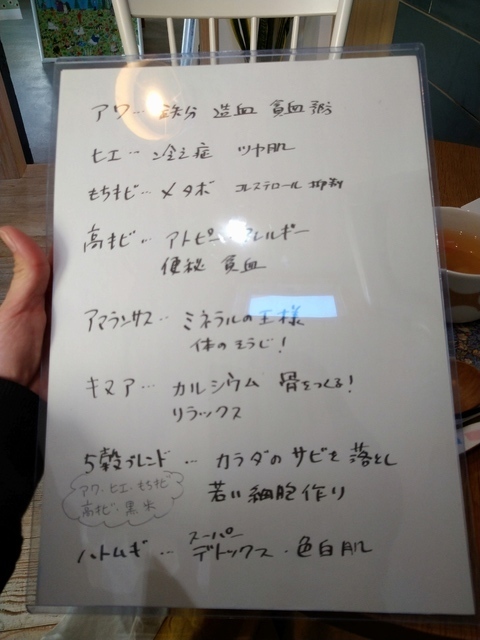 アワ… 鉄分 造血 貧血
ヒエ… 冷え症 ツヤ肌
もちキビ… メタボ コレステロール 抑制
高キビ… アトピー アレルギー
便秘 貧血
アマランサス… ミネラルの王様
体のそうじ!
キヌア… カルシウム 骨をつくる!
リラックス
5穀ブレンド … カラダのサビを落とし
アワ・ヒエ・もちキビ
高キビ・黒米
若い細胞作り
スーパー
ハトムギ… デトックス・色白肌